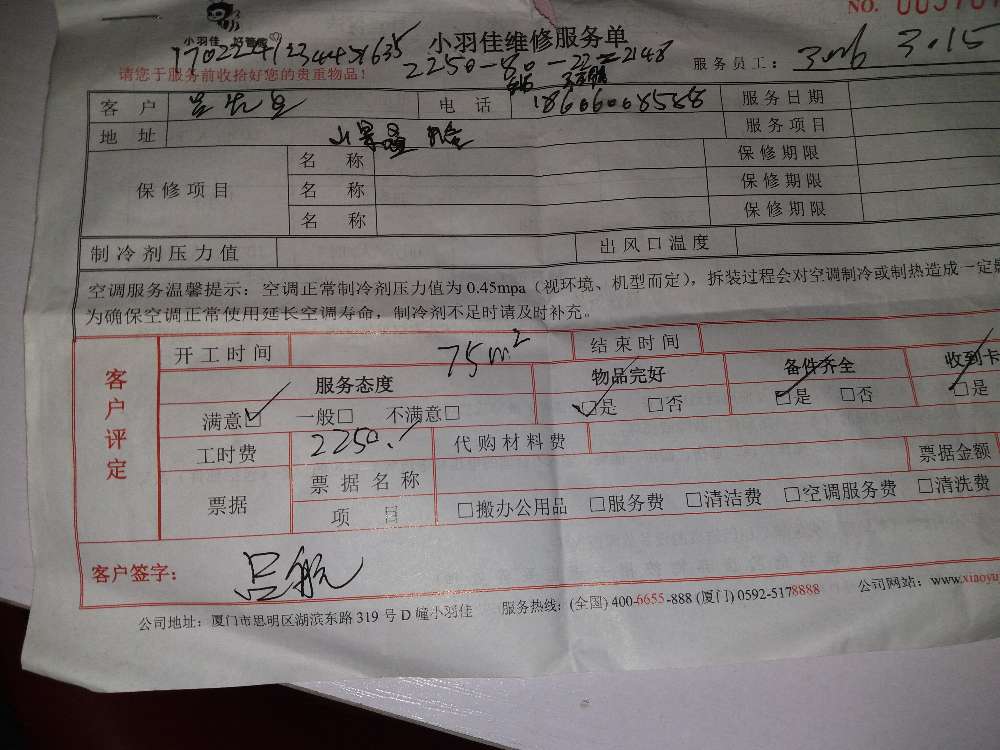 NO.
小羽佳 好管家 小羽佳维修服务单
2250-80-22=2148
请您于服务前收拾好您的贵重物品！ 服务员工： 3.15
客户 电话 18606008588 服务日期
地址 服务项目
保修项目 名称 保修期限
名称 保修期限
名称 保修期限
制冷剂压力值 出风口温度
空调服务温馨提示：空调正常制冷剂压力值为 0.45mpa（视环境、机型而定），拆装过程会对空调制冷或制热造成一定
为确保空调正常使用延长空调寿命，制冷剂不足时请及时补充。
客户评定 开工时间 75m² 结束时间
服务态度 物品完好 备件齐全 收到卡
满意☑ 一般□ 不满意□ □是 □否 □是 □否 □是
工时费 2250. 代购材料费
票据 票据名称 票据金额
项目 □搬办公用品 □服务费 □清洁费 □空调服务费 □清洗费
客户签字： 吕航
公司地址：厦门市思明区湖滨东路 319 号 D 幢小羽佳 服务热线：(全国) 400-6655-888 (厦门) 0592-5178888 公司网站：www.xiaoyu